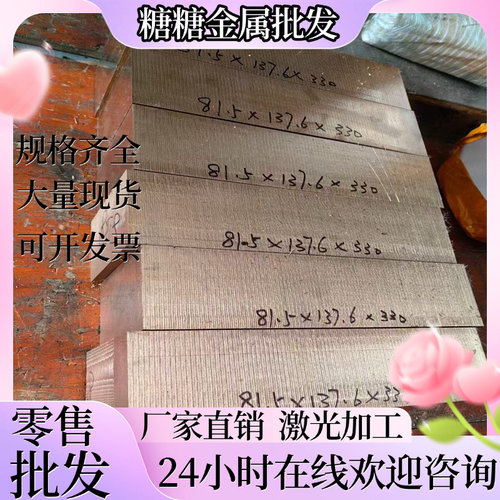 糖糖金属批发
81.5×137.6×330
81.5×137.6×330
81.5×137.6×330
81.5×137.6×330
81.5×137.6×330
81.5×137.6×33
规格齐全
大量现货
可开发票
零售
批发
厂家直销 激光加工
24小时在线欢迎咨询